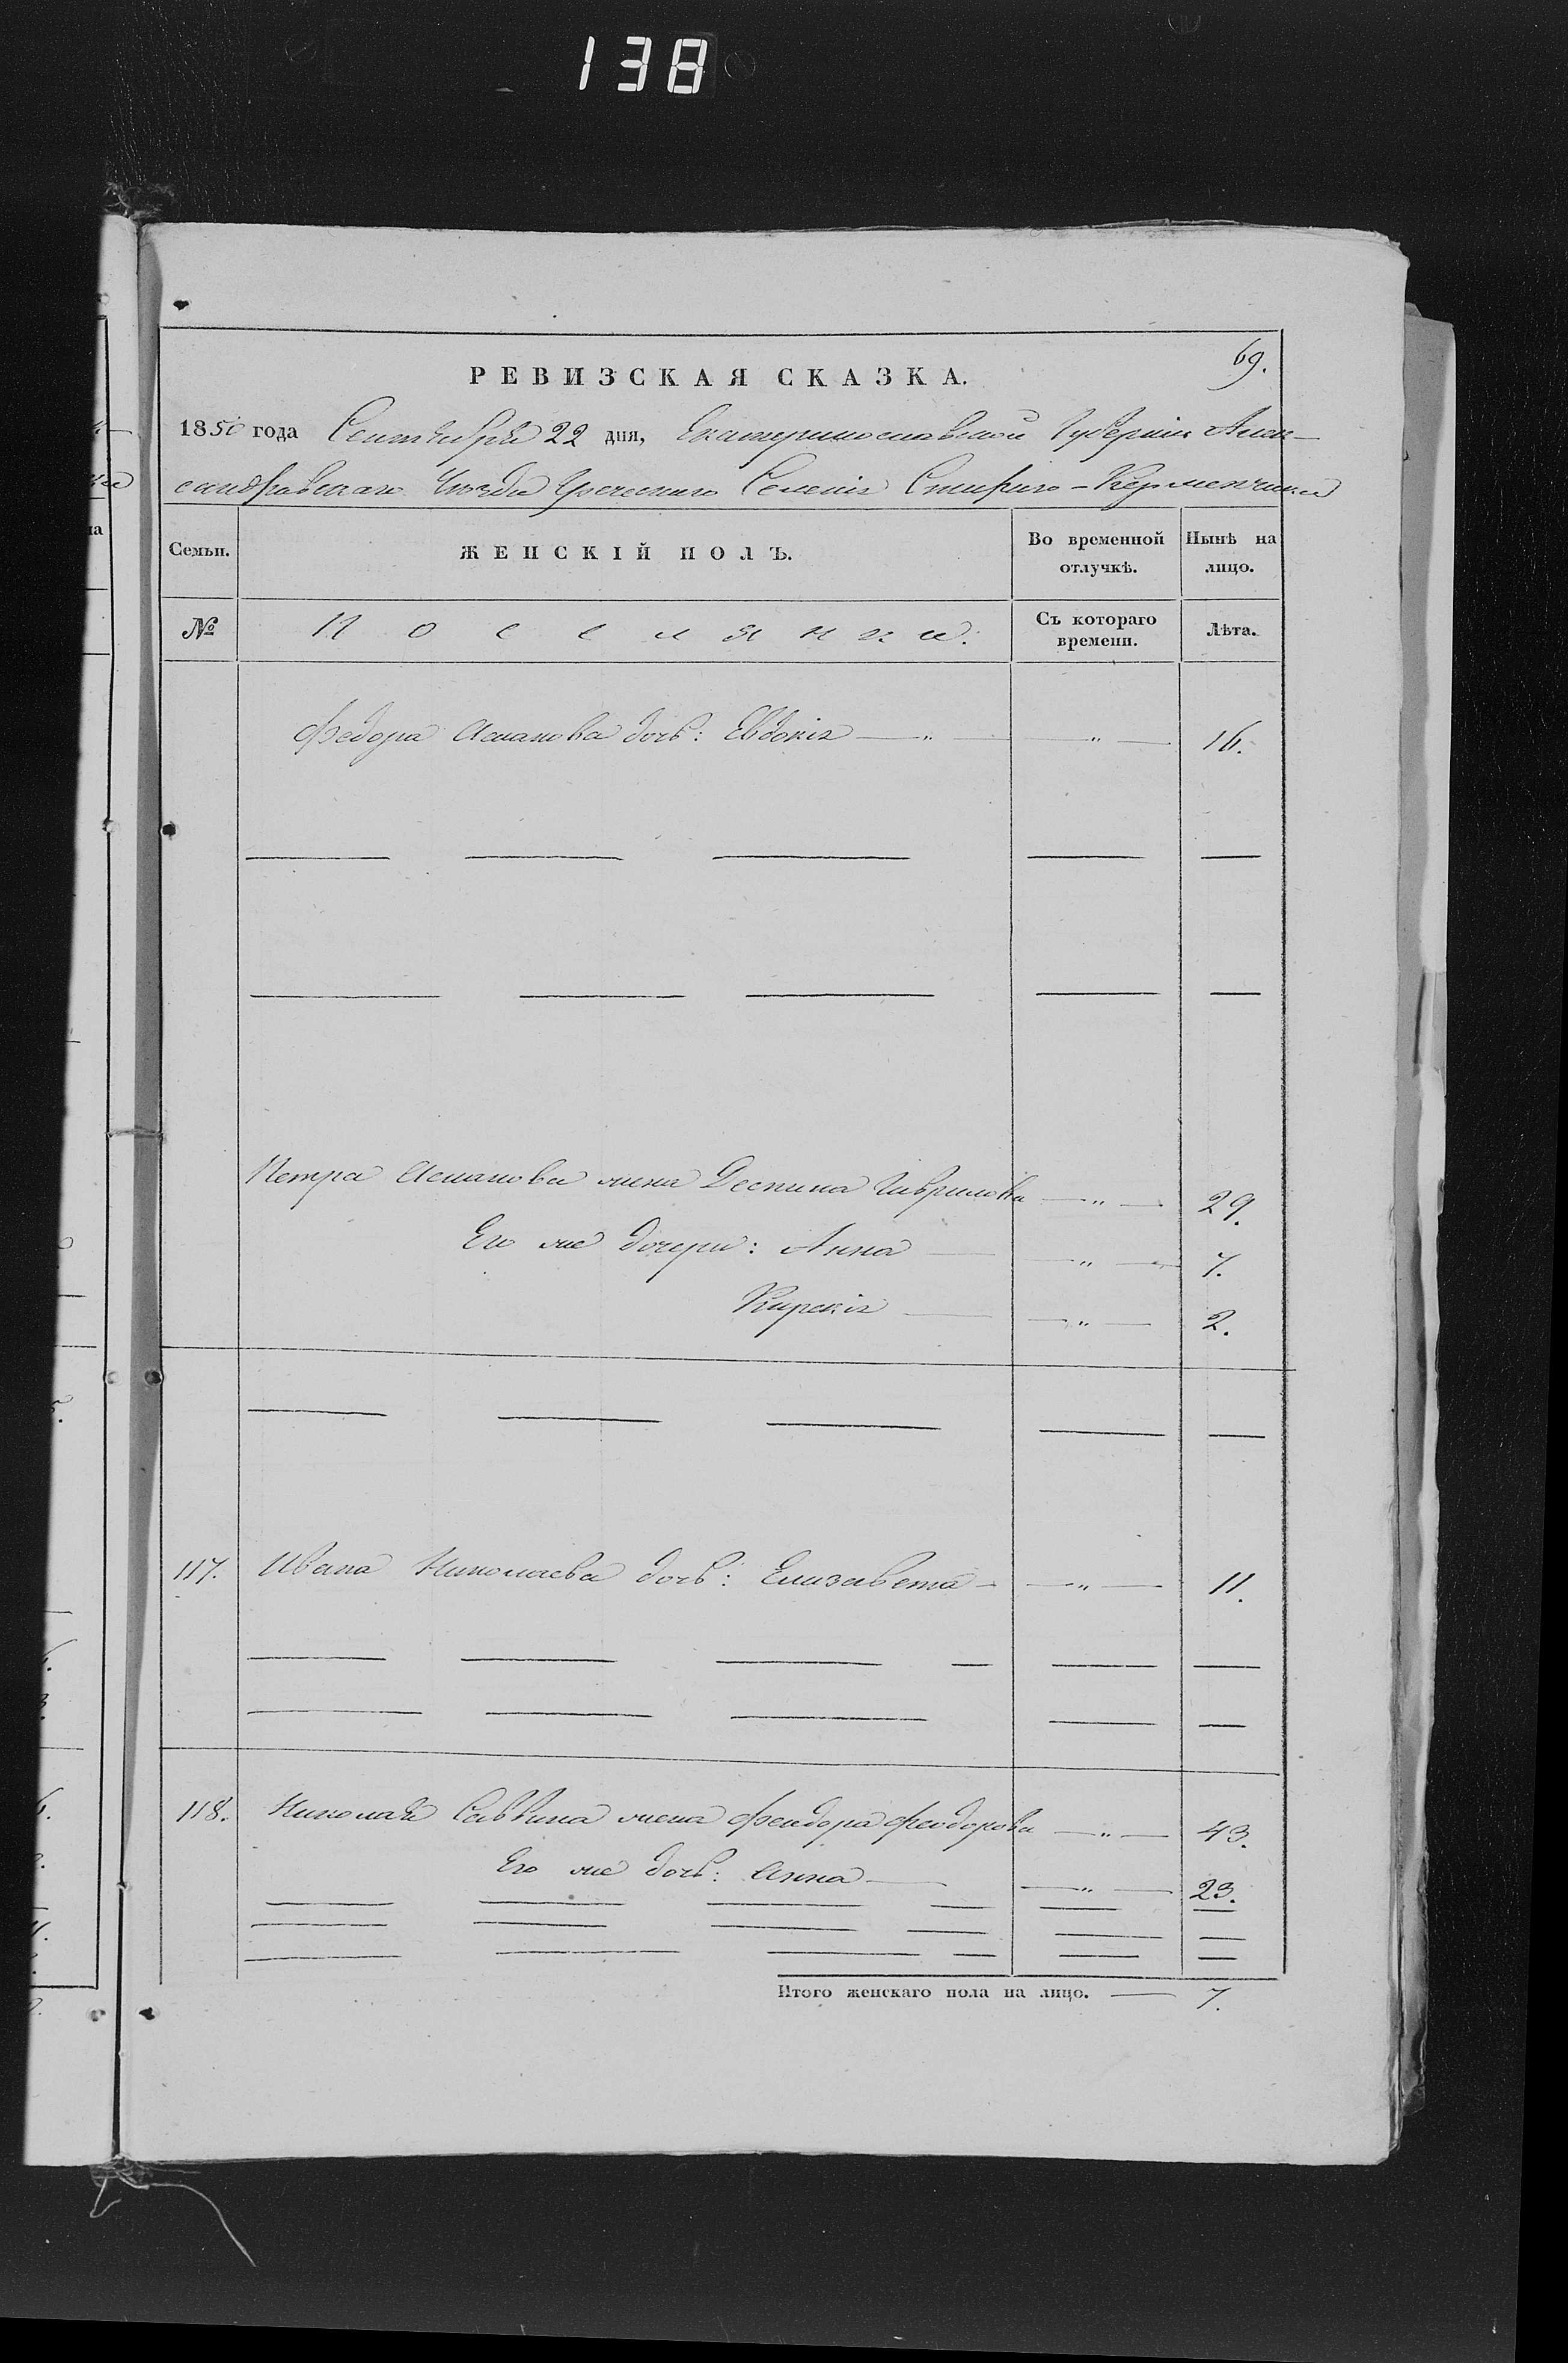 138
69.
РЕВИЗСКАЯ СКАЗКА.
1850 года Сентября 22 дня, Екатеринославской Губернии Алек-
сандровскаго Уезда Греческаго Селенія Стараго-Керменчика
Семьи. ЖЕНСКІЙ ПОЛЪ. Во временной отлучкѣ. Нынѣ на лицо.
№ Поселянки. Съ котораго времени. Лѣта.
Федора Асланова дочь: Евдокія — „ — — „ — 16.
Петра Асланова жена Деспина Гаврилова — „ — 29.
Его же дочери: Анна — — „ — 7.
Кирекія — — „ — 2.
117. Ивана Николаева дочь: Елизавета — — „ — 11.
118. Николая Саввина жена Феодора Феодорова — „ — 43.
Его же дочь: Анна — — „ — 23.
Итого женскаго пола на лицо. — 7.